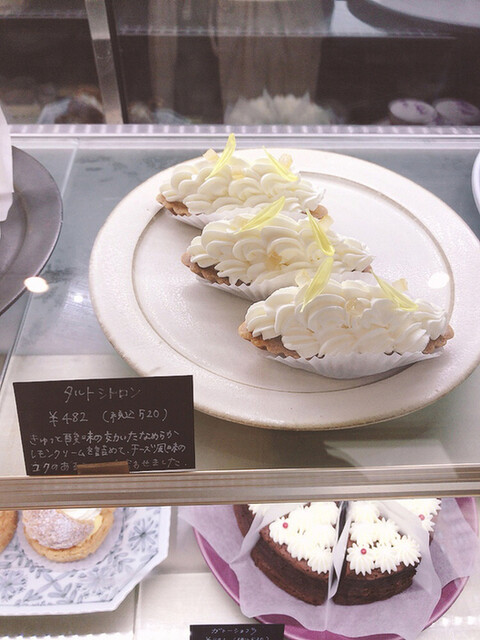 タルトシトロン
￥482 (税込520)
ぎゅっと酸味の効いたなめらか
レモンクリームを詰めて、チーズ風味の
コクのある
せました
ガトーショコラ